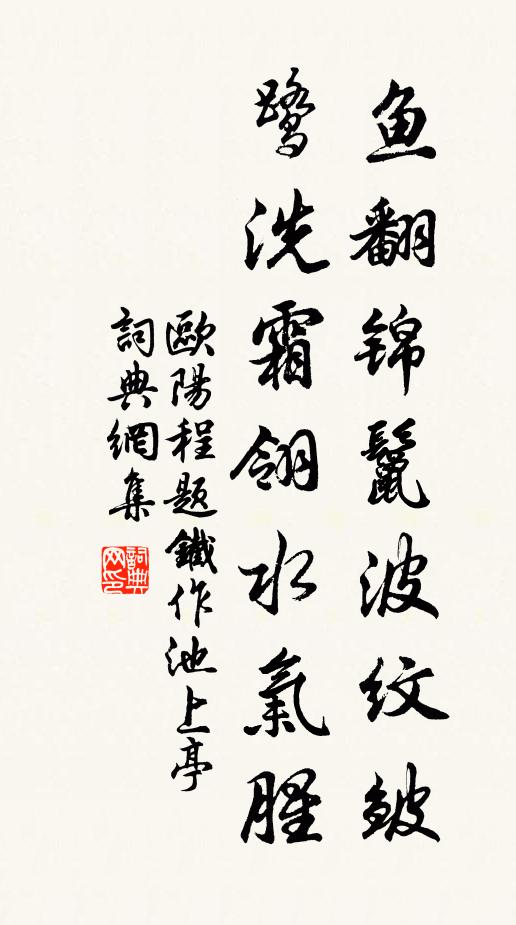 鱼翻锦鬣波纹皱
鹭洗霜翎水氣腥
歐陽程题鐵作池上亭
詞典網集
詞典网印